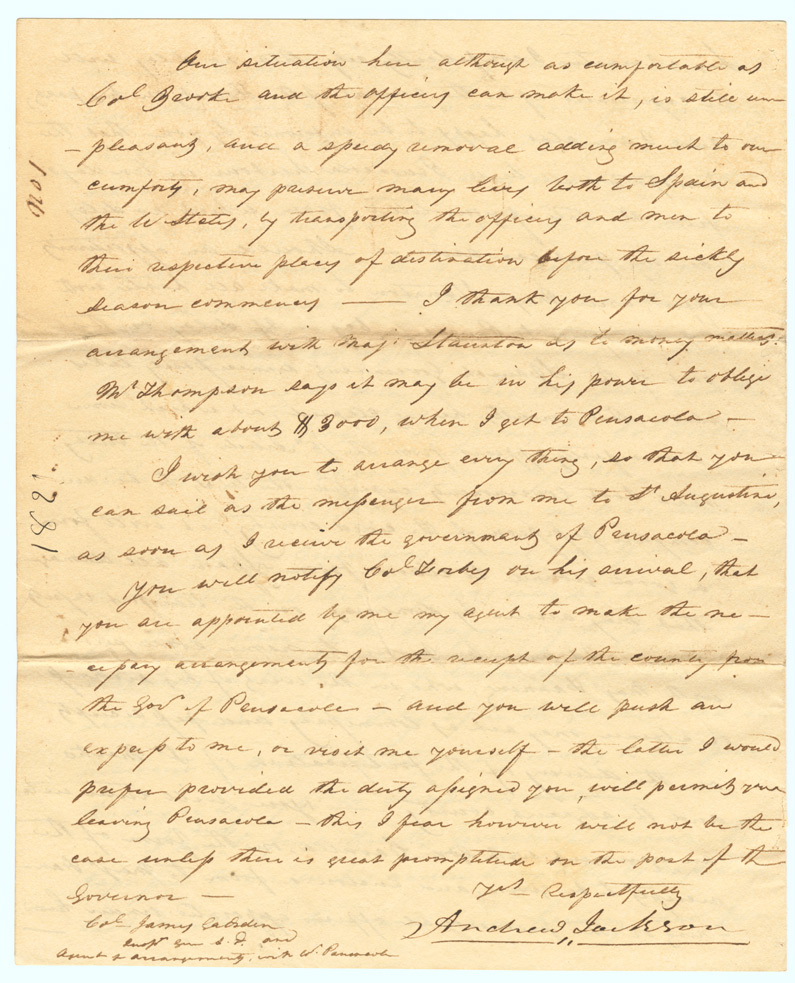 Our situation here although as comfortable as
Col Brooke and the officers can make it, is still un
-pleasant, and a speedy removal adding much to our
comforts, may preserve many lives both to Spain and
the U States, by transporting the officers and men to
their respective places of destination before the sickly
season commences — I thank you for your
arrangements with Maj. Staunton as to money matters.
Mr Thompson says it may be in his power to oblige
me with about $3000, when I get to Pensacola —
I wish you to arrange every thing, so that you
can sail as the messenger from me to St Augustine,
as soon as I receive the government of Pensacola —
You will notify Col Forbes on his arrival, that
you are appointed by me my agent to make the ne—
-cessary arrangements for the receipt of the country from
the Govr of Pensacola — and you will push an
express to me, or visit me yourself — the latter I would
prefer provided the duty assigned you, will permit your
leaving Pensacola — this I fear however will not be the
case unless there is great promptitude on the part of the
Governor —
yrs Respectfully
Andrew Jackson
Col James Gadsden
Inspr Gen S. D. and
Agent & arrangements, with
1821.